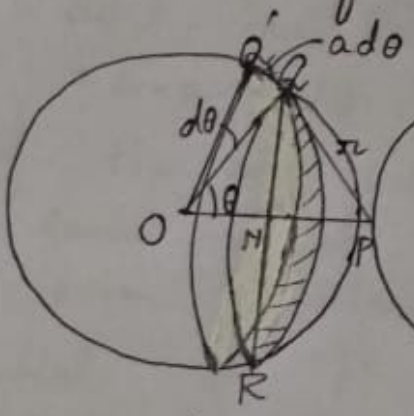 Q'
a dθ
Q
dθ
r
θ
O
N
P
R